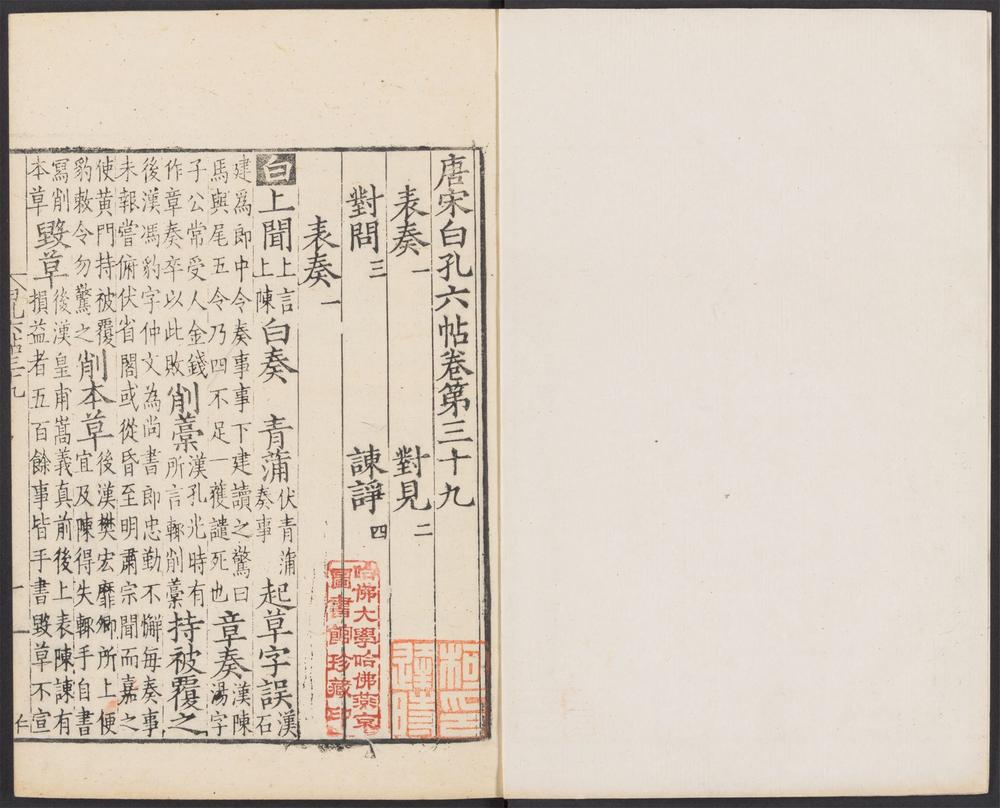 唐宋白孔六帖卷第三十九
表奏一 對見二
對問三 諫諍四
表奏一
白 上聞 上言上陳 白奏 青蒲 伏青蒲奏事 起草字誤 漢石
建為郎中令奏事事下建讀之驚曰馬與尾五今乃四不足一獲譴死也 章奏 漢陳湯字
子公常受人金錢作章奏卒以此敗 削藁 漢孔光時有所言輒削藁 持被覆之
後漢馮豹字仲文為尚書郎忠勤不懈每奏事未報嘗俯伏省閣或從昏至明肅宗聞而嘉之
使黃門持被覆豹敕令勿驚之 削本草 後漢樊宏靡卿所上便宜及陳得失輒手自書
寫削本草 毀草 後漢皇甫嵩義真前後上表陳諫有損益者五百餘事皆手書毀草不宣
哈佛大學哈佛燕京圖書館珍藏印
柯逢時印